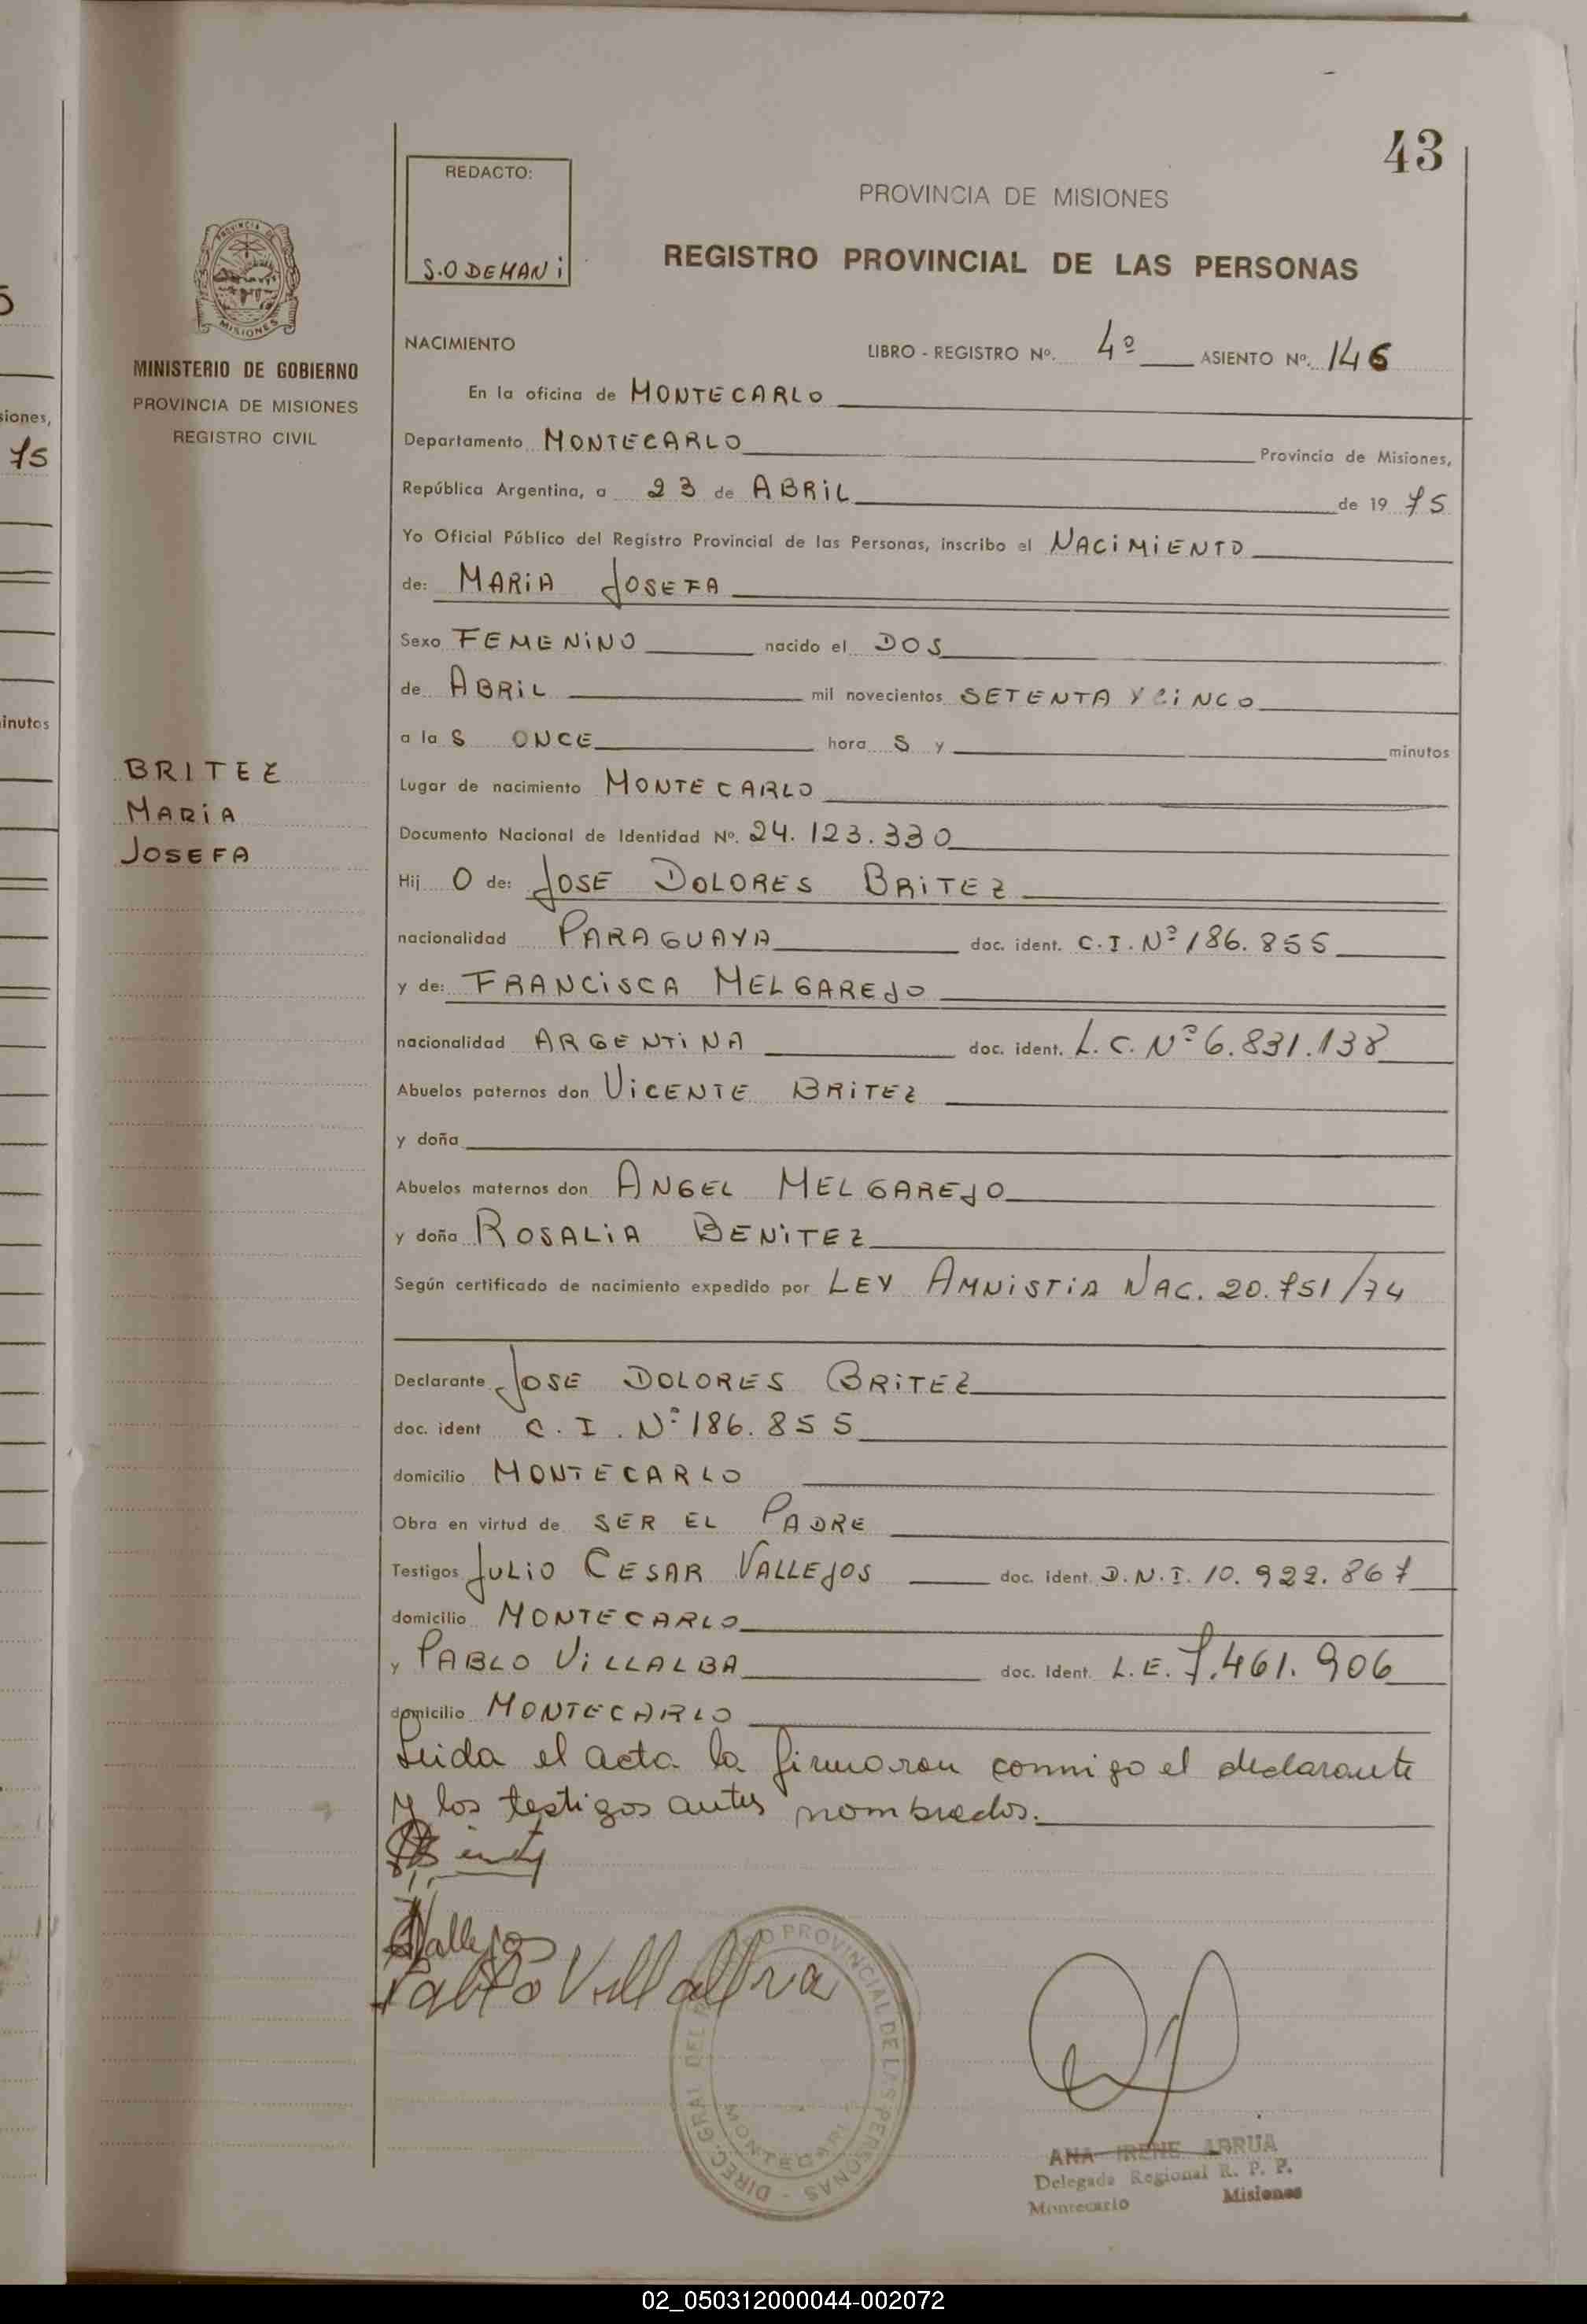 43
REDACTO:
S.ODEMANi
PROVINCIA DE MISIONES
REGISTRO PROVINCIAL DE LAS PERSONAS
PROVINCIA DE
MISIONES
MINISTERIO DE GOBIERNO
PROVINCIA DE MISIONES
REGISTRO CIVIL
NACIMIENTO
LIBRO - REGISTRO Nº. 4º ASIENTO Nº. 146
En la oficina de MONTECARLO
Departamento MONTECARLO Provincia de Misiones,
República Argentina, a 23 de ABRiL de 19 75
Yo Oficial Público del Registro Provincial de las Personas, inscribo el NACiMiENTO
de: MARiA JOSEFA
Sexo FEMENiNO nacido el DOS
de ABRiL mil novecientos SETENTA Y CiNCO
a la S ONCE hora S y minutos
Lugar de nacimiento MONTECARLO
Documento Nacional de Identidad Nº. 24.123.330
Hij O de: JOSE DOLORES BRiTEZ
nacionalidad PARAGUAYA doc. ident. C.I. Nº 186.855
y de: FRANCiSCA MELGAREJO
nacionalidad ARGENTiNA doc. ident. L.C. Nº 6.831.138
Abuelos paternos don ViCENTE BRiTEZ
y doña
Abuelos maternos don ANGEL MELGAREJO
y doña ROSALiA BENiTEZ
Según certificado de nacimiento expedido por LEY AMNiSTiA NAC. 20.751/74
Declarante JOSE DOLORES BRiTEZ
doc. ident C.I. Nº 186.855
domicilio MONTECARLO
Obra en virtud de SER EL PADRE
Testigos JULiO CESAR VALLEJOS doc. ident. D.N.I. 10.922.867
domicilio MONTECARLO
y PABLO ViLLALBA doc. Ident. L.E. 7.461.906
domicilio MONTECARLO
Leida el acta la firmaron conmigo el declarante
y los testigos antes nombrados.
BRITEZ
MARiA
JOSEFA
siones,
75
inutos
Vallejos
Pablo Villalba
DIREC. GRAL. DEL PROVINCIAL DE LAS PERSONAS
MONTECARLO
ANA IRENE ABRUA
Delegada Regional R. P. P.
Montecarlo Misiones
02_050312000044-002072